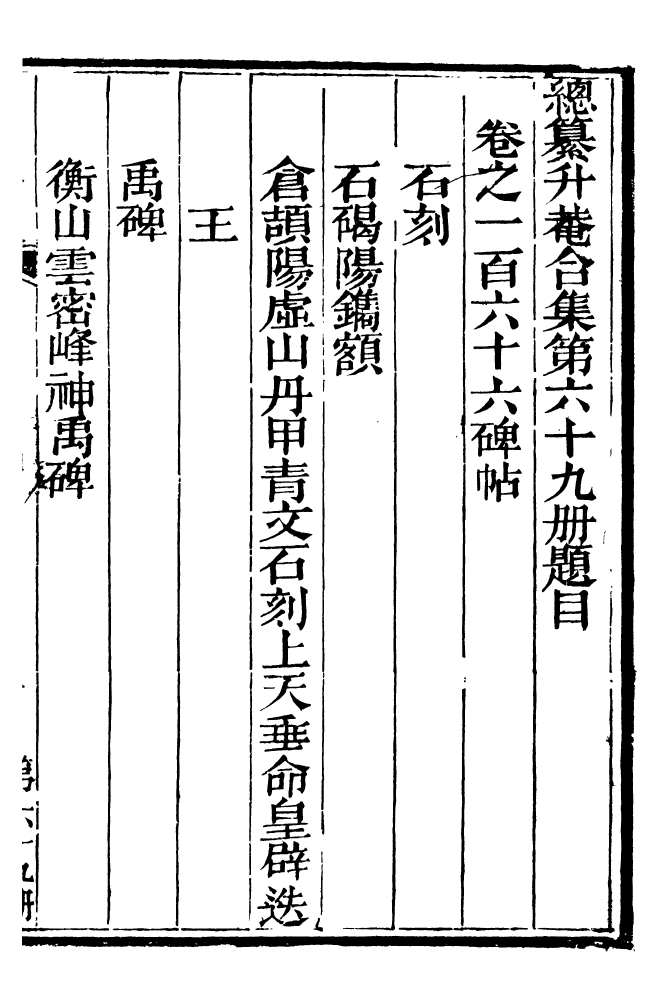 總纂升菴合集第六十九册題目
卷之一百六十六碑帖
石刻
石碣陽鐫額
倉頡陽虛山丹甲青文石刻上天垂命皇辟迭
王
禹碑
衡山雲密峰神禹碑
第六十九册